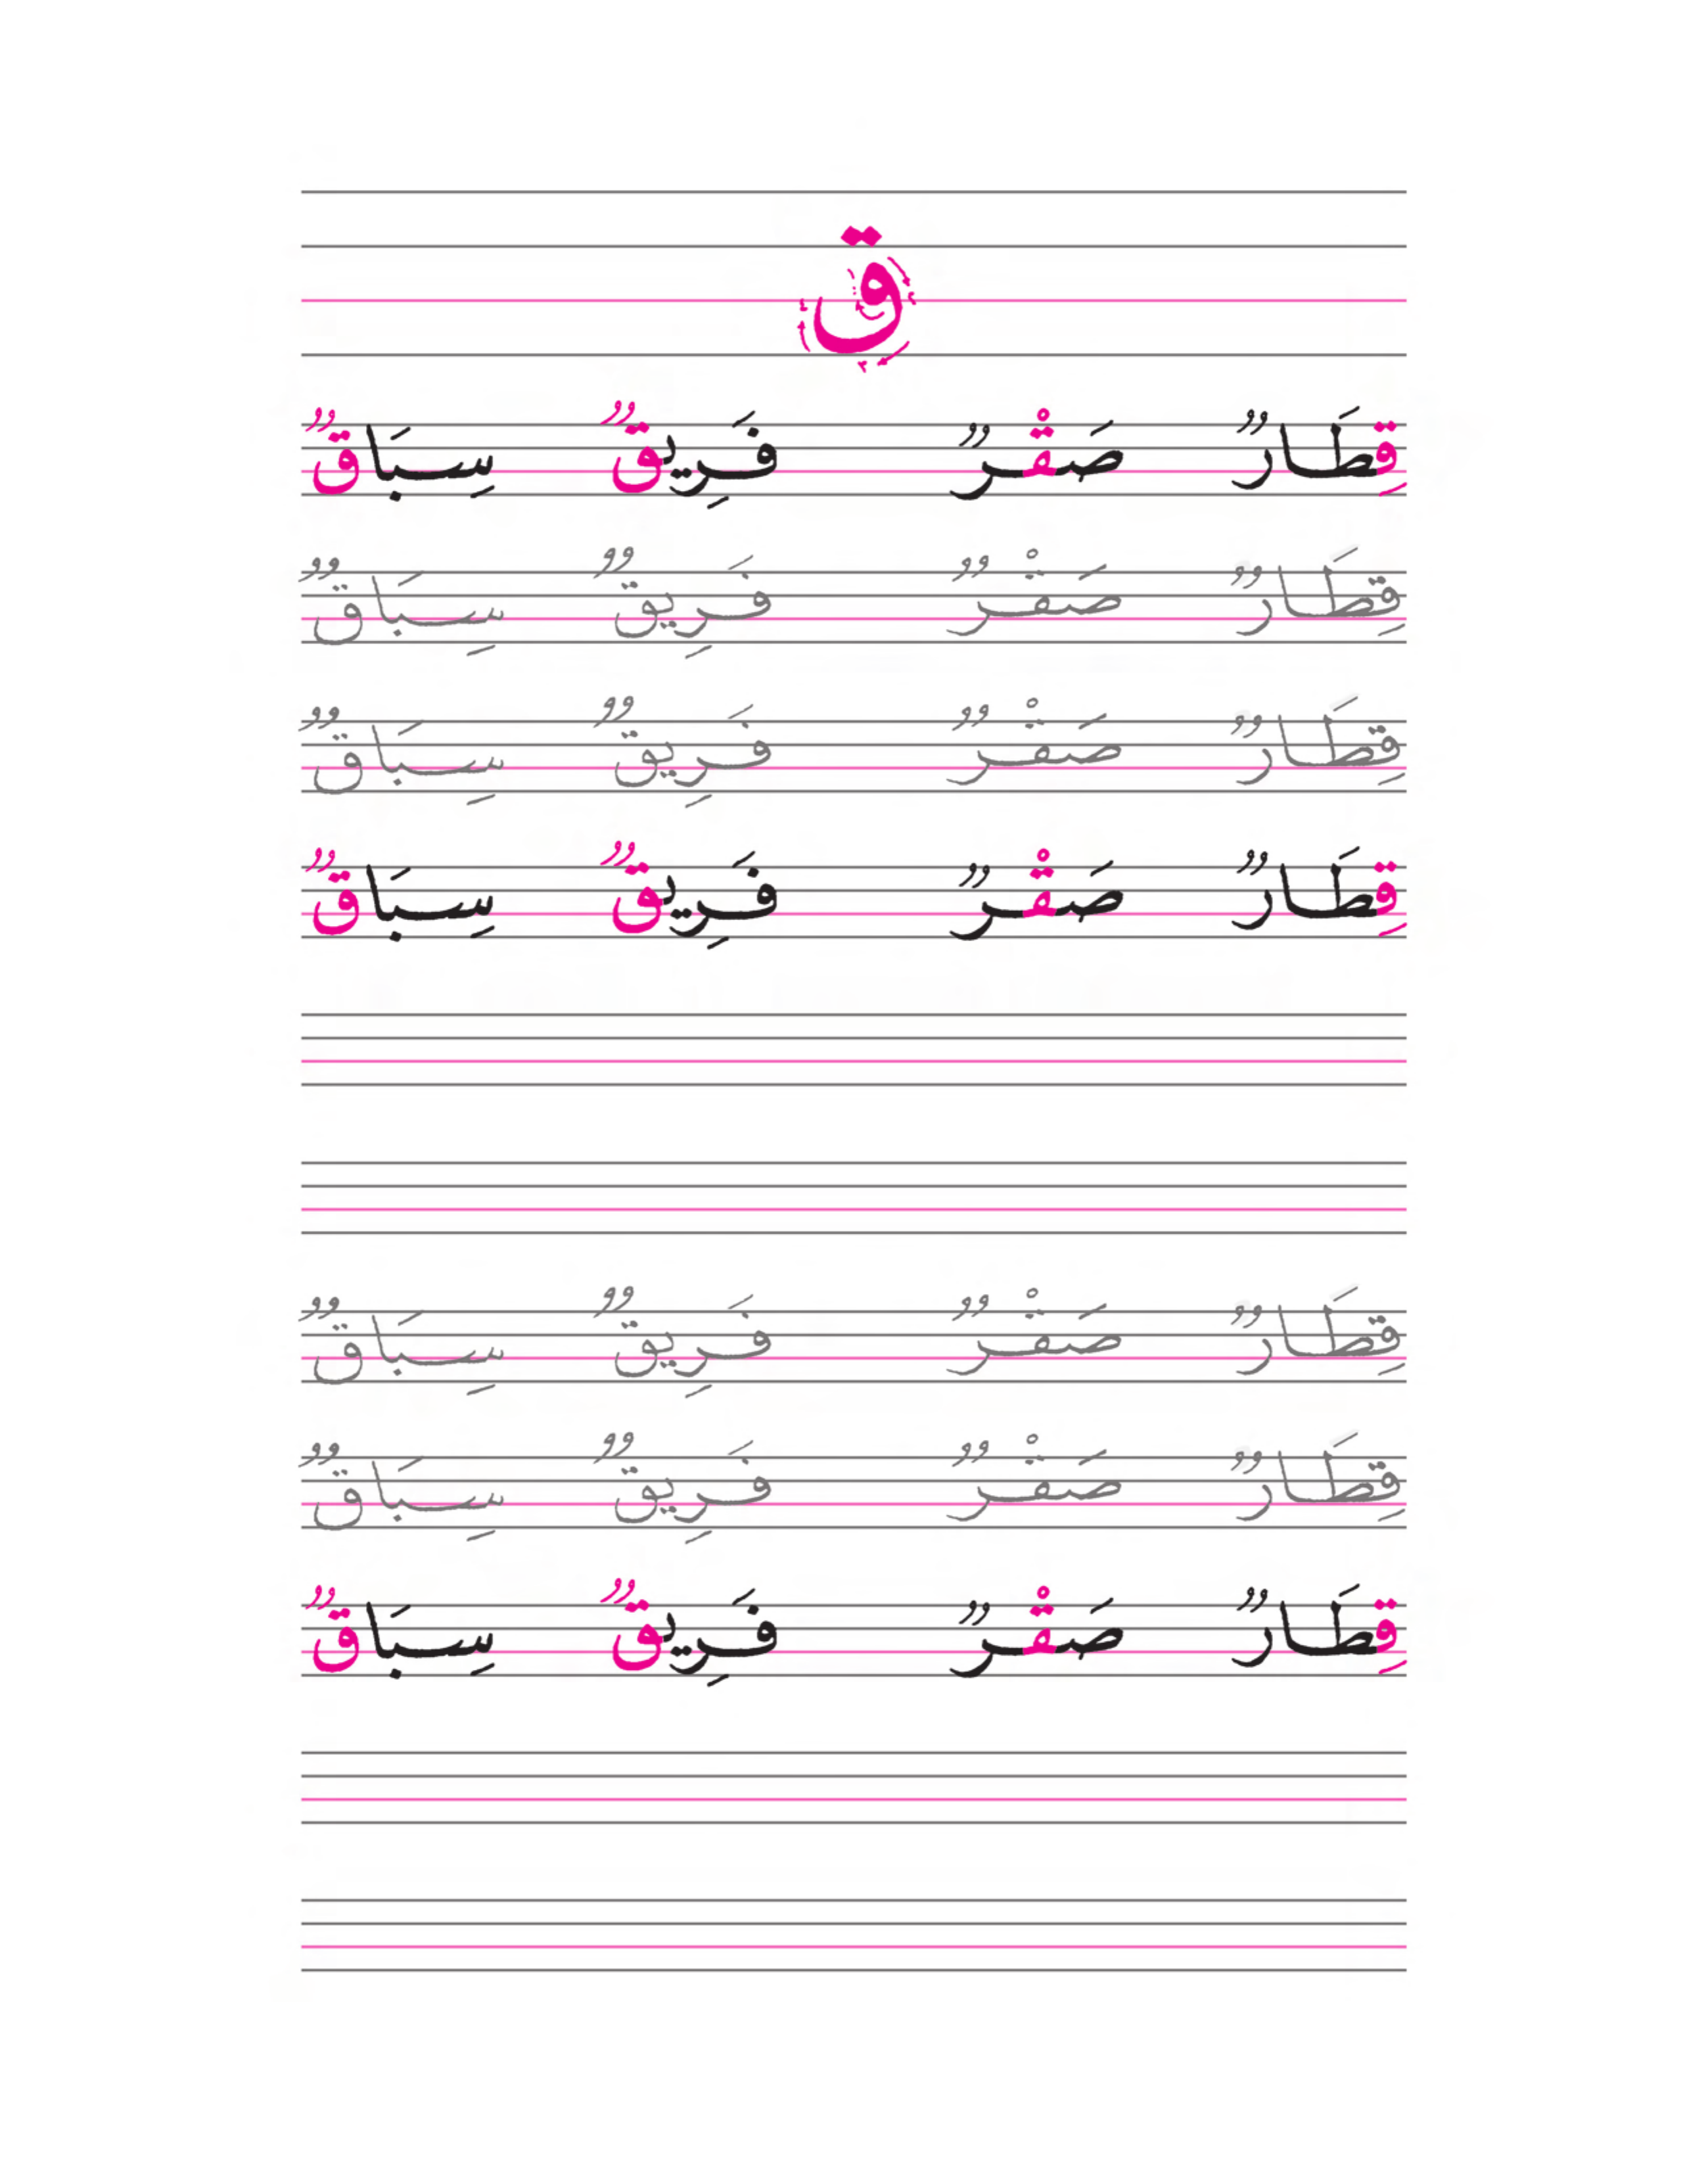 ق
قِطَارٌ صَقْرٌ فَرِيقٌ سِبَاقٌ
قِطَارٌ صَقْرٌ فَرِيقٌ سِبَاقٌ
قِطَارٌ صَقْرٌ فَرِيقٌ سِبَاقٌ
قِطَارٌ صَقْرٌ فَرِيقٌ سِبَاقٌ
قِطَارٌ صَقْرٌ فَرِيقٌ سِبَاقٌ
قِطَارٌ صَقْرٌ فَرِيقٌ سِبَاقٌ
قِطَارٌ صَقْرٌ فَرِيقٌ سِبَاقٌ